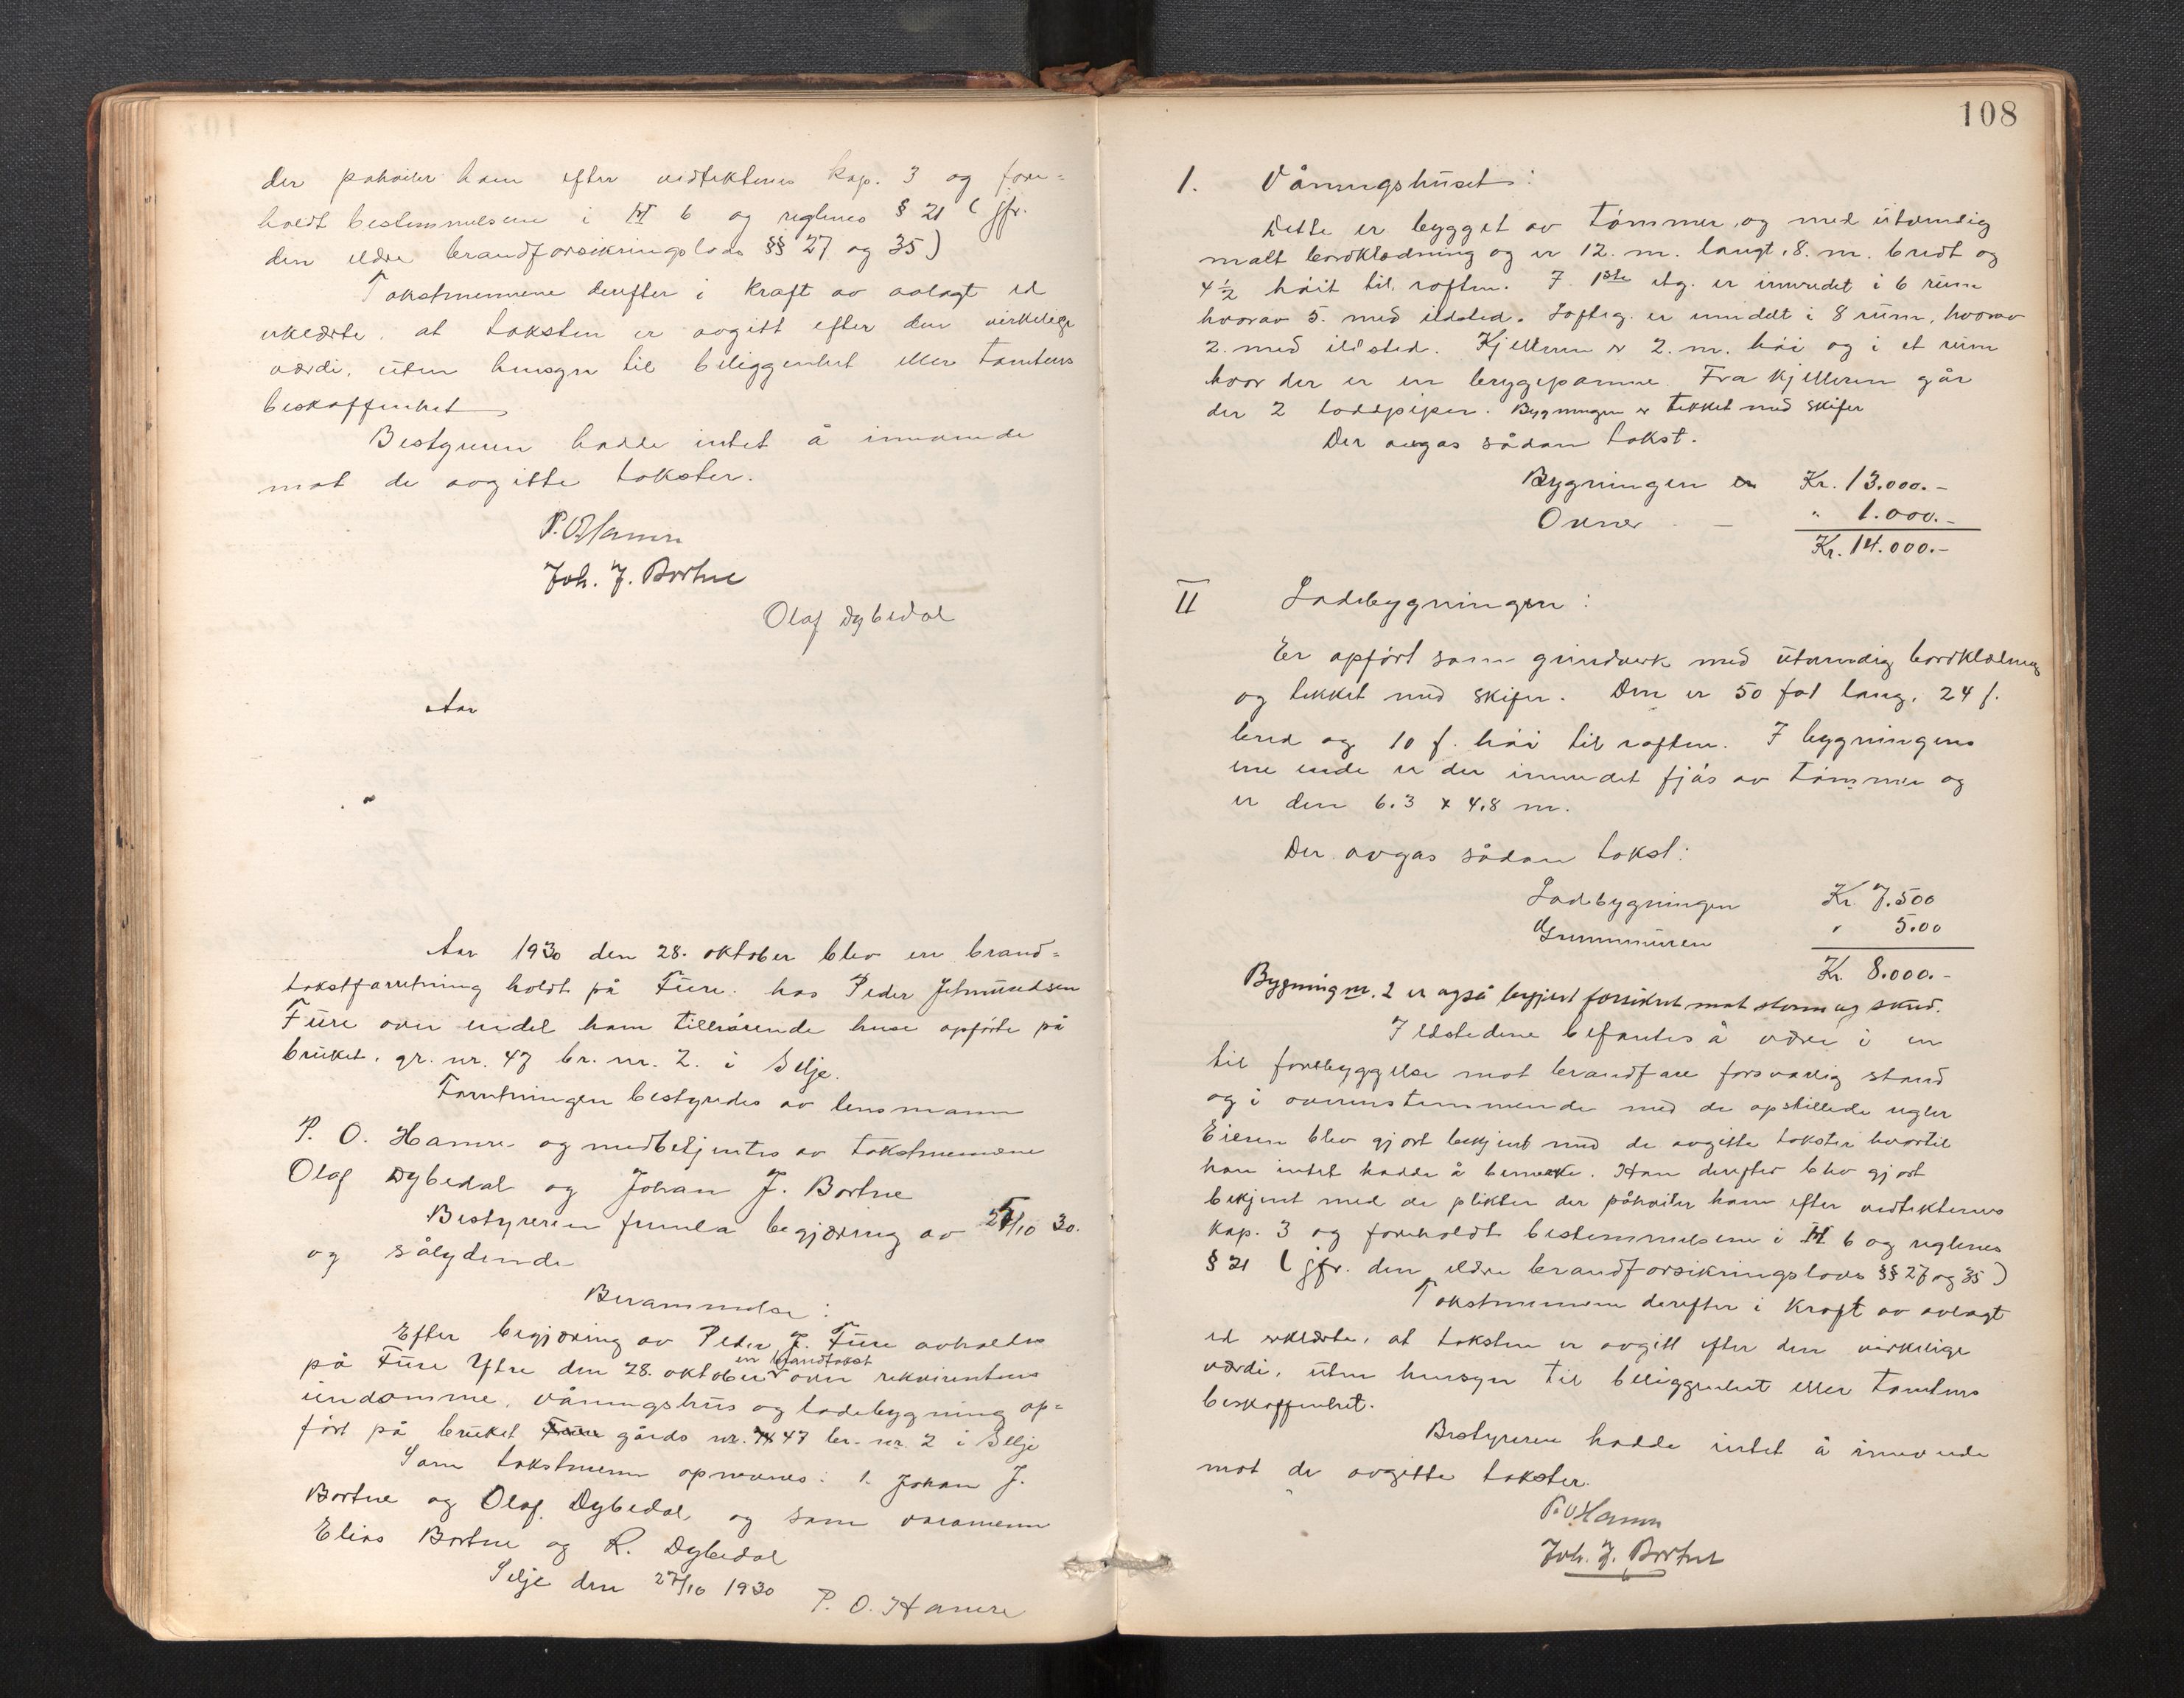 der pahviler ham efter vedtektenes kap. 3 og fore=
holdt bestemmelsene i VI 6 og reglenes § 21 ( jfr.
den eldre brandforsikringslovs §§ 27 og 35)
Takstmennene derefter i kraft av avlagt ed
erklærte, at taksten er avgitt efter den virkelige
værdi, uten hensyn til beliggenhet eller tomtens
beskaffenhet
Bestyreren hadde intet å innvende
mot de avgitte takster.
P. O. Hamre
Joh. J. Bortne
Olaf Dybedal
Aar
Aar 1930 den 28. oktober blev en brand=
takstforretning holdt på Füre. hos Peder Jetmundsen
Füre over endel ham tilhørende huse opførte på
brüket, gr. nr. 47 br. nr. 2. i Selje.
Forretningen bestyredes av lensmann
P. O. Hamre og medbetjentes av takstmennene
Olaf Dybedal og Johan J. Bortne
Bestyreren fremla begjæring av 27/10 30.
og sålydende
Berammelse :
Efter begjæring av Peder J. Füre avholdes
på Füre Ytre den 28. oktober en brandtakst over rekvirentens
eiendomme, våningshüs og ladebygning op=
ført på brüket Füre gårds nr. 47 br. nr. 2 i Selje
Som takstmenn opnevnes : 1. Johan J.
Bortne og Olaf Dybedal, og som varamenn
Elias Bortne og R. Dybedal
Selje den 27/10 1930
P. O. Hamre
108
1. Våningshüset :
Dette er bygget av tømmer, og med ütvendig
malt bordklædning og er 12. m. langt, 8. m. bredt og
4 1/2 høit til raften. I 1ste etg. er innredet i 6 rüm
hvorav 5. med ildsted. Loftsetg. er inndelt i 8 rüm, hvorav
2. med ildsted. Kjelleren er 2. m. høi og i et rüm
hvor der er en bryggepanne. Fra kjelleren går
der 2 loddpiper. Bygningen er tekket med skifer
Der avgas sådan takst.
Bygningen en Kr. 13.000.-
Ovner - " 1.000.-
Kr. 14.000.-
II Ladebygningen :
Er opført som grindverk med ütvendig bordklædning
og tekket med skifer. Den er 50 fot lang, 24 f.
bred og 10 f. høi til raften. I bygningens
ene ende er der innredet fjøs av tømmer og
er den 6.3 x 4.8 m.
Der avgas sådan takst :
Ladebygningen Kr. 7.500
Grunnmüren " 5.00
Kr. 8.000.-
Bygning nr. 2 er også begjert forsikret mot storm og skred.
Ildstedene befantes å være i en
til forebyggelse mot brandfare forsvarlig stand
og i overenstemmende med de opstillede regler
Eieren blev gjort bekjent med de avgitte takster hvortil
han intet hadde å bemerke. Han derefter blev gjort
bekjent med de plikter der påhviler ham efter vedtektenes
kap. 3 og foreholdt bestemmelsene i VI 6 og reglenes
§ 21 ( jfr. den eldre brandforsikringslovs §§ 27 og 35)
Takstmennene derefter i kraft av avlagt
ed erklærte, at taksten er avgitt efter den virkelige
værdi, üten hensyn til beliggenhet eller tomtens
beskaffenhet.
Bestyreren hadde intet å innvende
mot de avgitte takster.
P. O. Hamre
Joh. J. Bortne